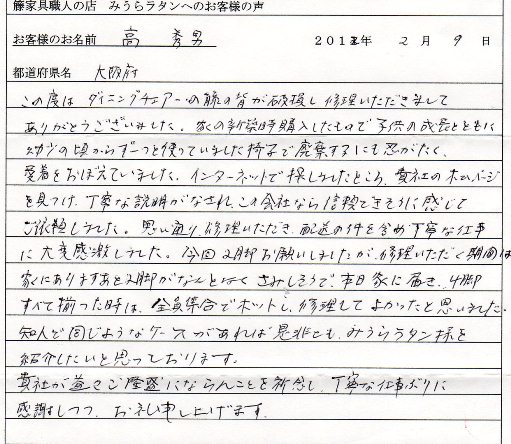 籐家具職人の店 みうらラタンへのお客様の声
お客様のお名前 高 秀男 2012年 2月 9日
都道府県名 大阪府
この度は ダイニングチェアーの籐の背が破損し修理いただきまして
ありがとうございました。家の新築時購入したもので子供の成長とともに
幼少の頃からずーっと使っていました椅子で廃棄するにも忍がたく、
愛着をおぼえていました。インターネットで探しましたところ、貴社のホームページ
を見つけ、丁寧な説明がなされ、この会社なら信頼できそうに感じて
ご依頼しました。思い通り修理いただき、配送の件を含め丁寧な仕事
に大変感激しました。今回2脚お願いしましたが、修理いただく期間は
家にありますあと2脚がなんとなくさみしそうで、本日家に届き、4脚
すべて揃った時は、全員集合でホットし、修理してよかったと思いました。
知人で同じようなケースがあれば是非とも、みうらラタン様を
紹介したいと思っております。
貴社が益々ご隆盛にならんことを祈念し、丁寧な仕事ぶりに
感謝しつつ、お礼申し上げます。